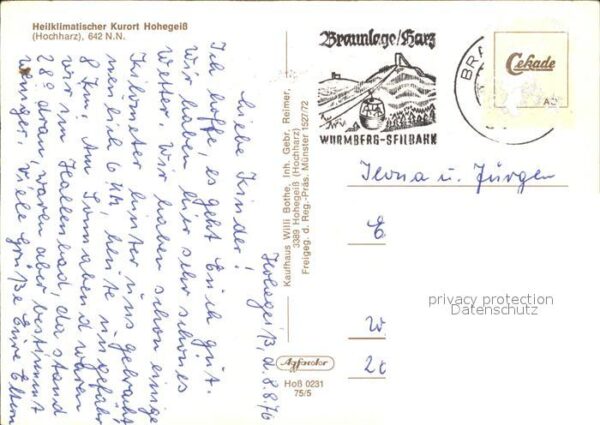 Heilklimatischer Kurort Hohegeiß
(Hochharz), 642 N.N.
Hohegeiß, d. 8.8.76
Liebe Kinder!
Ich hoffe, es geht Euch gut.
Wir haben hier sehr schönes
Wetter. Wir haben schon einige
Kilometer hinter uns gebracht
8 Km. Am Sonnabend waren
wir im Hallenbad, da stand
28° daran, waren aber bestimmt
weniger. Viele Grüße Eure Eltern
Kaufhaus Willi Bothe, Inh. Gebr. Reimer,
3389 Hohegeiß (Hochharz)
Freigeg. d. Reg.-Präs. Münster 1527/72
Agfacolor
Hoß 0231
75/5
Braunlage/Harz
WURMBERG-SEILBAHN
BR
Cekade
Ilona u. Jürgen
E
privacy protection
Datenschutz
W
20